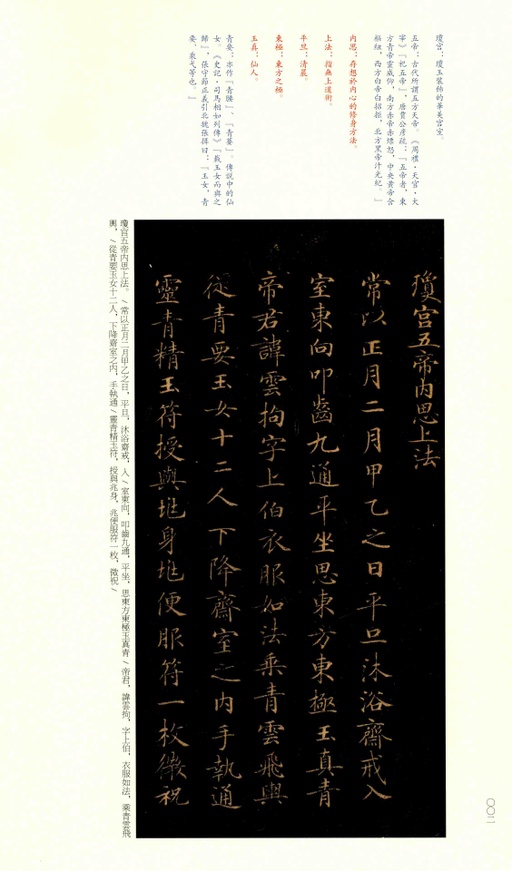 瓊宮：瓊玉裝飾的華美宮室。
五帝：古代所謂五方天帝。《周禮·天官·大
宰》「祀五帝」，唐賈公彥疏：「五帝者，東
方青帝靈威仰，南方赤帝赤熛怒，中央黃帝含
樞紐，西方白帝白招拒，北方黑帝汁光紀。」
內思：存想於內心的修身方法。
上法：指無上道術。
平旦：清晨。
東極：東方之極。
玉真：仙人。
青要：亦作「青腰」、「青䔄」。傳說中的仙
女。《史記·司馬相如列傳》「載玉女而與之
歸」，張守節正義引北魏張揖曰：「玉女，青
要、乘弋等也。」
瓊宮五帝內思上法
常以正月二月甲乙之日平旦沐浴齋戒入
室東向叩齒九通平坐思東方東極玉真青
帝君諱雲拘字上伯衣服如法乘青雲飛輿
從青要玉女十二人下降齋室之內手執通
靈青精玉符授與兆身兆便服符一枚微祝
瓊宮五帝內思上法。/常以正月二月甲乙之日，平旦，沐浴齋戒，入/室東向，叩齒九通，平坐，思東方東極玉真青/帝君，諱雲拘，字上伯，衣服如法，乘青雲飛
輿，/從青要玉女十二人，下降齋室之內，手執通/靈青精玉符，授與兆身，兆便服符一枚，微祝/
〇〇二